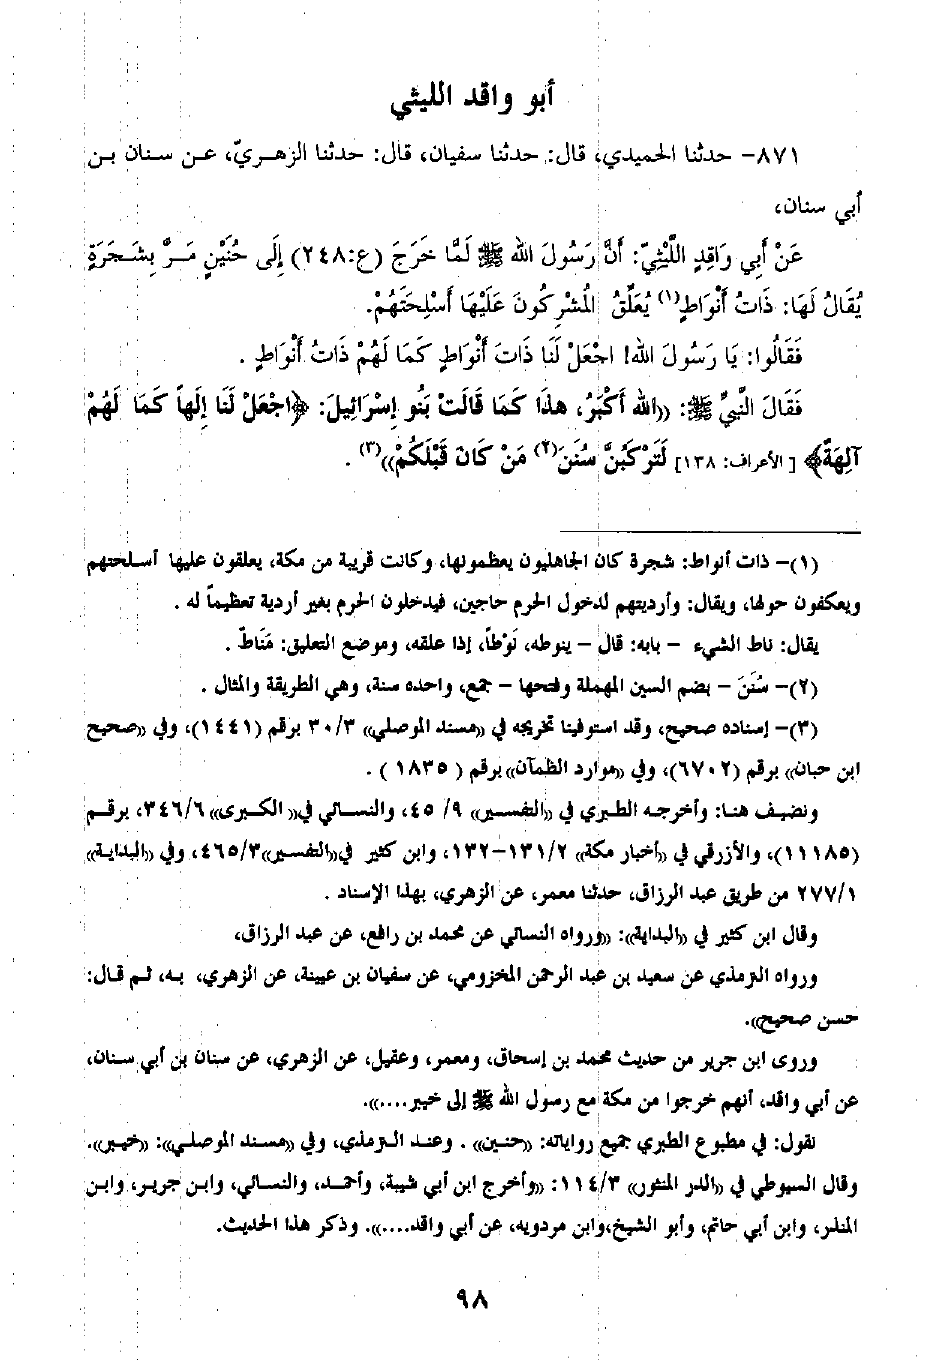 أبو واقد الليثي
٨٧١- حدثنا الحميدي، قال: حدثنا سفيان، قال: حدثنا الزهريّ، عن سنان بن
أبي سنان،
عَنْ أَبِي وَاقِدٍ اللَّيْثِيّ: أَنَّ رَسُولَ الله ﷺ لَمَّا خَرَجَ (ع:٢٤٨) إِلَى حُنَيْنٍ مَرَّ بِشَجَرَةٍ
يُقَالُ لَهَا: ذَاتُ أَنْوَاطٍ(١) يُعَلِّقُ الْمُشْرِكُونَ عَلَيْهَا أَسْلِحَتَهُمْ.
فَقَالُوا: يَا رَسُولَ الله! اجْعَلْ لَنَا ذَاتَ أَنْوَاطٍ كَمَا لَهُمْ ذَاتُ أَنْوَاطٍ .
فَقَالَ النَّبِيِّ ﷺ: ((الله أَكْبَرُ، هذَا كَمَا قَالَتْ بَنُو إِسْرَائِيلَ: ﴿اجْعَلْ لَنَا إِلَهاً كَمَا لَهُمْ
آلِهَةٌ﴾ [ الأعراف: ١٣٨] لَتَرْكَبُنَّ سُنَنَ(٢) مَنْ كَانَ قَبْلَكُمْ))(٣) .
(١)- ذات أنواط: شجرة كان الجاهليون يعظمونها، وكانت قريبة من مكة، يعلقون عليها أسلحتهم
ويعكفون حولها، ويقال: وأرديتهم لدخول الحرم حاجين، فيدخلون الحرم بغير أردية تعظيماً له .
يقال: ناط الشيء - بابه: قال - ينوطه، نَوْطاً، إذا علقه، وموضع التعليق: مَنَاطٌ .
(٢)- سُنَنَ - بضم السين المهملة وفتحها - جمع، واحده سنة، وهي الطريقة والمثال .
(٣)- إسناده صحيح، وقد استوفينا تخريجه في ((مسند الموصلي)) ٣٠/٣ برقم (١٤٤١)، وفي ((صحيح
ابن حبان)) برقم (٦٧٠٢)، وفي ((موارد الظمآن)) برقم ( ١٨٣٥) .
ونضيف هنا: وأخرجه الطبري في ((التفسير)) ٩/ ٤٥، والنسائي في(( الكبرى)) ٣٤٦/٦، برقم
(١١١٨٥)، والأزرقي في ((أخبار مكة)) ١٣١/٢-١٣٢، وابن كثير في((التفسير))٤٦٥/٣، وفي ((البداية))
٢٧٧/١ من طريق عبد الرزاق، حدثنا معمر، عن الزهري، بهذا الإسناد .
وقال ابن كثير في ((البداية)): ((ورواه النسائي عن محمد بن رافع، عن عبد الرزاق،
ورواه الترمذي عن سعيد بن عبد الرحمن المخزومي، عن سفيان بن عيينة، عن الزهري، به، ثم قال:
حسن صحيح)).
وروى ابن جرير من حديث محمد بن إسحاق، ومعمر، وعقيل، عن الزهري، عن سنان بن أبي سنان،
عن أبي واقد، أنهم خرجوا من مكة مع رسول الله ﷺ إلى خيبر....)).
نقول: في مطبوع الطبري جميع رواياته: ((حنين)) . وعند الترمذي، وفي ((مسند الموصلي)): ((خيبر)).
وقال السيوطي في ((الدر المنثور)) ١١٤/٣: ((وأخرج ابن أبي شيبة، وأحمد، والنسائي، وابن جرير، وابن
المنذر، وابن أبي حاتم، وأبو الشيخ،وابن مردويه، عن أبي واقد....)). وذكر هذا الحديث.
٩٨